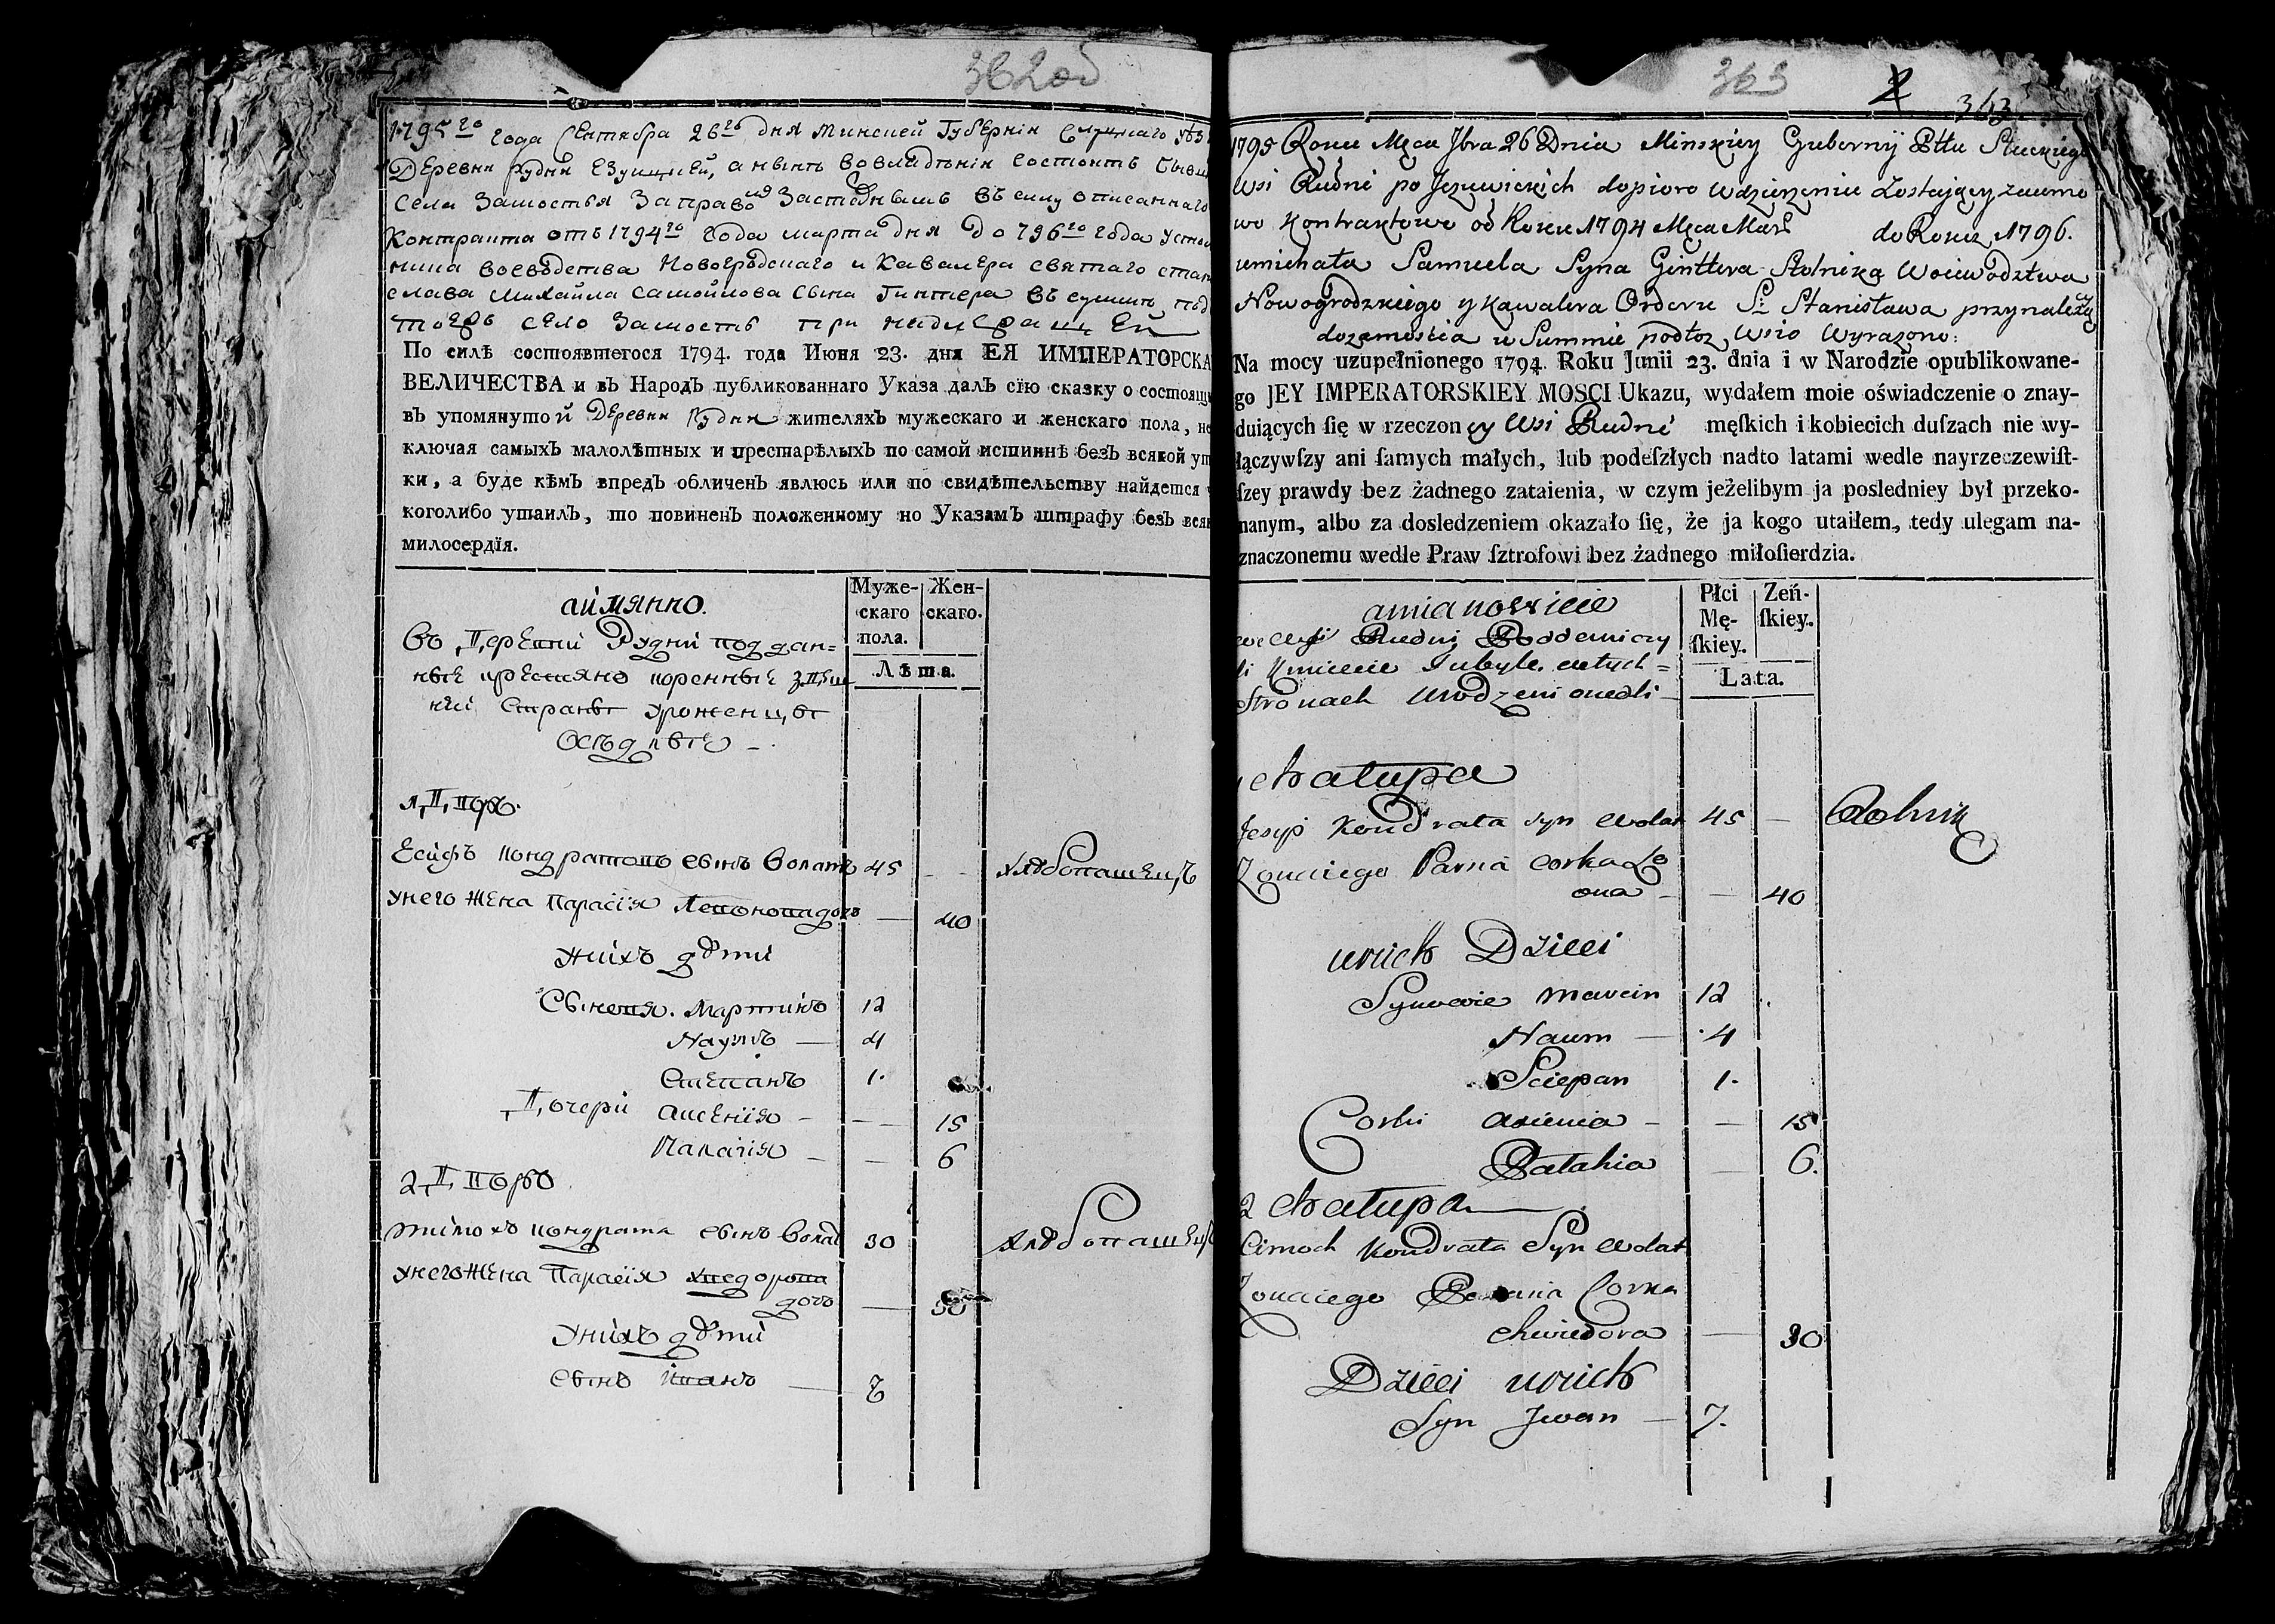 362об
1795го года Сентября 26го дня Минской Губернии Слуцкаго
Деревни Рудни Езуицкей, а нынѣ во владѣнии состоитъ
села Замостья Заправою Заставнымъ въ силу описаннаго
контракта отъ 1794го года марта дня до 796го года
ника воеводства Новогродскаго и Кавалера святаго
слава Михайла Самойлова сына Гинтера въ сумми под
тоеръ село Замость при
По силѣ состоявшегося 1794. года Июня 23. дня ЕЯ ИМПЕРАТОРСКА
ВЕЛИЧЕСТВА и въ Народъ публикованнаго Указа далъ сїю сказку о состоящ
въ упомянутой Деревни Рудни жителяхъ мужескаго и женскаго пола, не
ключая самыхъ малолѣтныхъ и престарѣлыхъ по самой истиннѣ безъ всякой ут
ки, а буде кѣмъ впредь обличенъ явлюсь или по свидѣтельству найдется
коголибо утаилъ, то повиненъ положенному по Указамъ штрафу безъ вся
милосердїя.
аймянно.
Муже-скаго пола.
Жен-скаго.
Лѣта.
Въ Деревни Рудни поддан=
ные крестяне коренные здеш
ни странъ уроженцы
оседлые -
1, Двор.
Есифъ Кондратовъ сынъ Волатъ 45 - - Хлѣбопашецъ
Унего жена Парасія дочъ — 40
Унихъ дѣти
Сыновя. Мартинъ 12
Наумъ — 4
Степанъ 1.
Дочери Аксенія - - - 15
Палагія - — 6
2, Дворъ
Тимохъ Кондрата сынъ Волат 30 Хлѣбопашецъ
Унего жена Парасія Хведорова
дочъ — 30
Унихъ дѣти
Сынъ Иванъ — 7
363
2
363
1795 Roku Męca 7bra 26 Dnia Minskiey Guberny Pttu Sluckiego
Wsi Rudni po Jezuwickich dopiero w dzierzeniu Zostaiącey zaumo
wo Kontraktowo od Roku 1794 Męca Mar. do Roku 1796.
umichała Samuela Syna Ginttera Stolnika Woiewodztwa
Nowogrodzkiego y Kawalera Orderu S: Stanisława przynależy
dozamościa w Summie podłoz Wsio Wyrazono:
Na mocy uzupełnionego 1794. Roku Junii 23. dnia i w Narodzie opublikowane-
go JEY IMPERATORSKIEY MOSCI Ukazu, wydałem moie oświadczenie o znay-
duiących ſię w rzeczoney Wsi Rudni męſkich i kobiecich duſzach nie wy-
łączywſzy ani ſamych małych, lub podeſzłych nadto latami wedle nayrzeczewiſt-
ſzey prawdy bez żadnego zataienia, w czym jeżelibym ja posledniey był przeko-
nanym, albo za dosledzeniem okazało ſię, że ja kogo utaiłem, tedy ulegam na-
znaczonemu wedle Praw ſztrofowi bez żadnego miłoſierdzia.
amianowicie
Płci Mę-ſkiey.
Zeń-ſkiey.
Lata.
we Wsi Rudni Poddemniczy
li Kmiecie wtych=
Stronach Urodzeni
chatupa
Jesyp Kondrata syn Wołat 45 — Rolnik
Zonaiego Parnia Corka Le
ona - — 40
unich Dzieci
Synowie Marcin 12
Naum — 4
Sciepan 1.
Corki Axienia - — 15
Patahia — 6.
2 chatupa
Cimoch Kondrata Syn Wołat
Zonaiego Corka
Chwiedora — 30
Dzieci unich
Syn Jwan — 7.